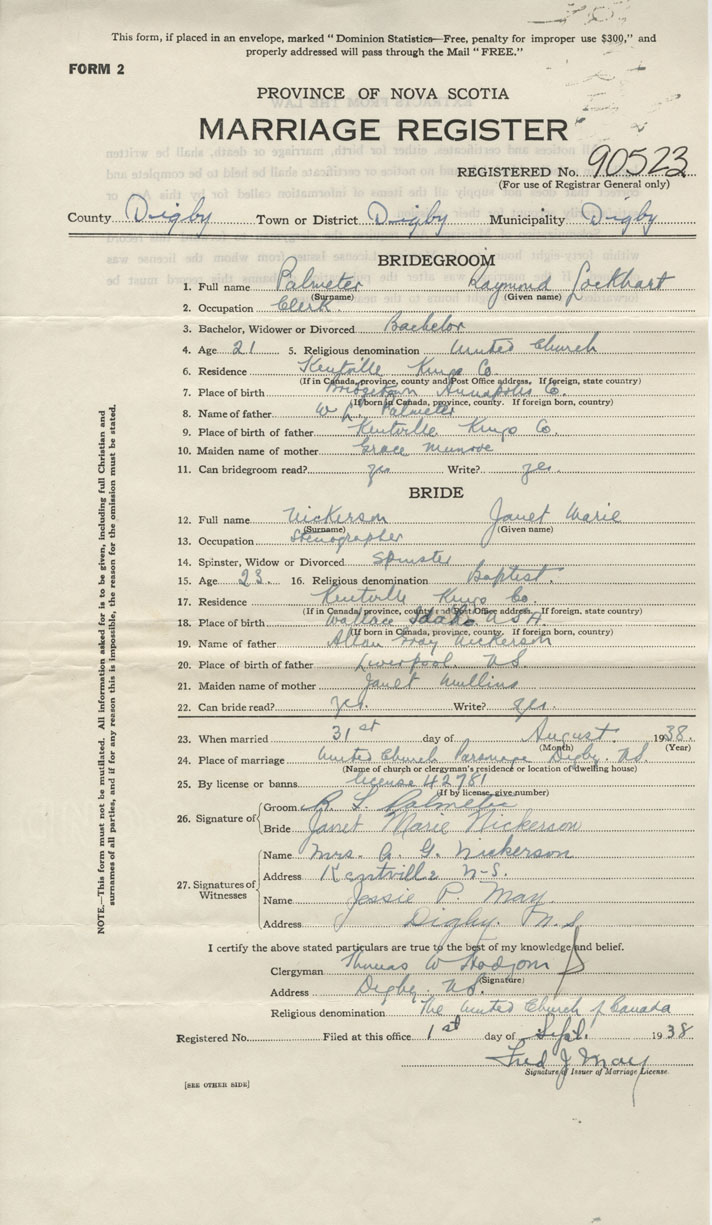 This form, if placed in an envelope, marked "Dominion Statistics—Free, penalty for improper use $300," and
properly addressed will pass through the Mail "FREE."
FORM 2
PROVINCE OF NOVA SCOTIA
MARRIAGE REGISTER
REGISTERED No. 90523
(For use of Registrar General only)
County Digby Town or District Digby Municipality Digby
BRIDEGROOM
1. Full name Palmeter Raymond Lockhart
(Surname) (Given name)
2. Occupation Clerk
3. Bachelor, Widower or Divorced Bachelor
4. Age 21 5. Religious denomination United Church
6. Residence Kentville Kings Co.
(If in Canada, province, county and Post Office address. If foreign, state country)
7. Place of birth Bridgetown Annapolis Co.
(If born in Canada, province, county. If foreign born, country)
8. Name of father W L Palmeter
9. Place of birth of father Kentville Kings Co.
10. Maiden name of mother Grace Munroe
11. Can bridegroom read? yes Write? yes.
BRIDE
12. Full name Nickerson Janet Marie
(Surname) (Given name)
13. Occupation Stenographer
14. Spinster, Widow or Divorced Spinster
15. Age 23. 16. Religious denomination Baptist.
17. Residence Kentville Kings Co.
(If in Canada, province, county and Post Office address. If foreign, state country)
18. Place of birth Wallace Idaho. U S A.
(If born in Canada, province, county. If foreign born, country)
19. Name of father Allan Gray Nickerson
20. Place of birth of father Liverpool. N S.
21. Maiden name of mother Janet Mullins
22. Can bride read? yes. Write? yes.
23. When married 31st day of August. 1938.
(Month) (Year)
24. Place of marriage United Church Parsonage Digby. N.S.
(Name of church or clergyman's residence or location of dwelling house)
25. By license or banns license 42781
(If by license, give number)
26. Signature of Groom R. L. Palmeter
Bride Janet Marie Nickerson
27. Signatures of Witnesses
Name Mrs. A. G. Nickerson
Address Kentville N-S.
Name Jessie P. May
Address Digby. N.S
I certify the above stated particulars are true to the best of my knowledge and belief.
Clergyman Thomas W Hodgson
(Signature)
Address Digby. N.S.
Religious denomination The United Church of Canada
Registered No. Filed at this office 1st day of Sept. 1938
Fred J May
Signature of Issuer of Marriage License.
[SEE OTHER SIDE]
NOTE.—This form must not be mutilated. All information asked for is to be given, including full Christian and
surnames of all parties, and if for any reason this is impossible, the reason for the omission must be stated.